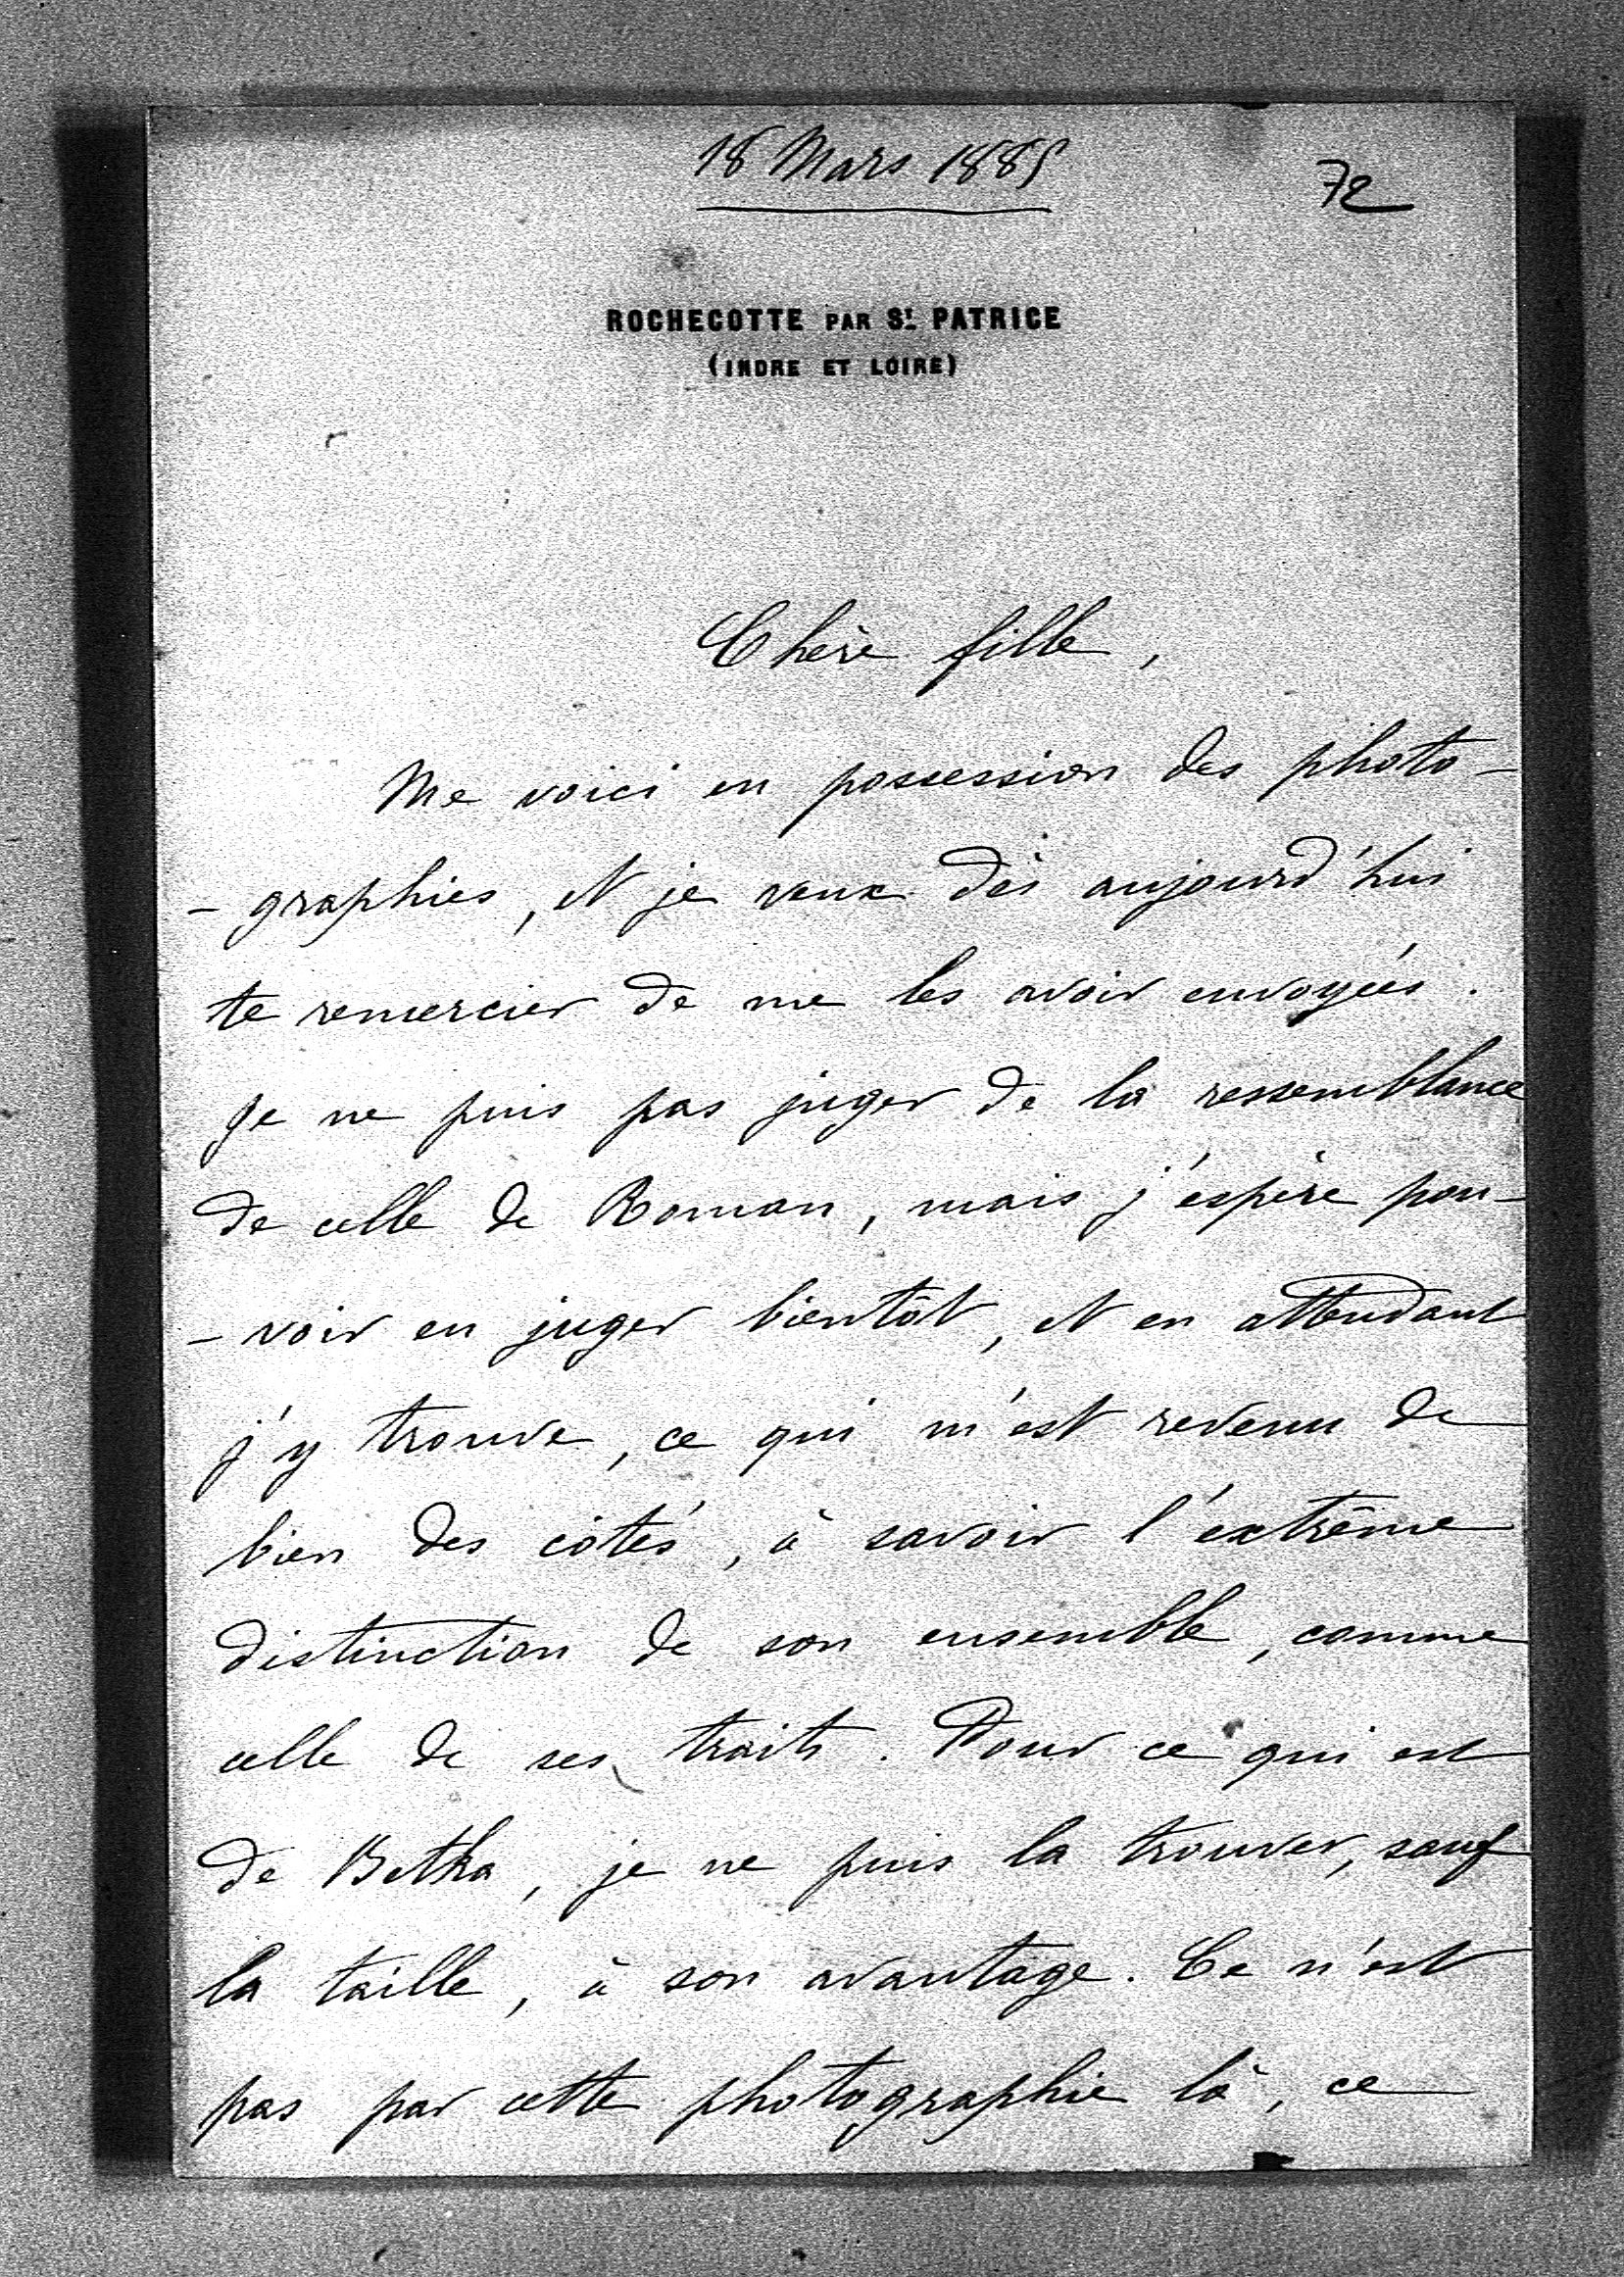 18 Mars 1885
72
ROCHECOTTE PAR St. PATRICE
(INDRE ET LOIRE)
Chère fille,
Me voici en possession des photo-
- graphies, et je veux dès aujourd'hui
te remercier de me les avoir envoyées.
Je ne puis pas juger de la ressemblance
de celle de Roman, mais j'espère pou-
- voir en juger bientôt, et en attendant
j'y trouve, ce qui m'est revenu de
bien des côtés, à savoir l'extrême
distinction de son ensemble, comme
celle de ses traits. Pour ce qui est
de Betka, je ne puis la trouver, sauf
la taille, à son avantage. Ce n'est
pas par cette photographie là, ce